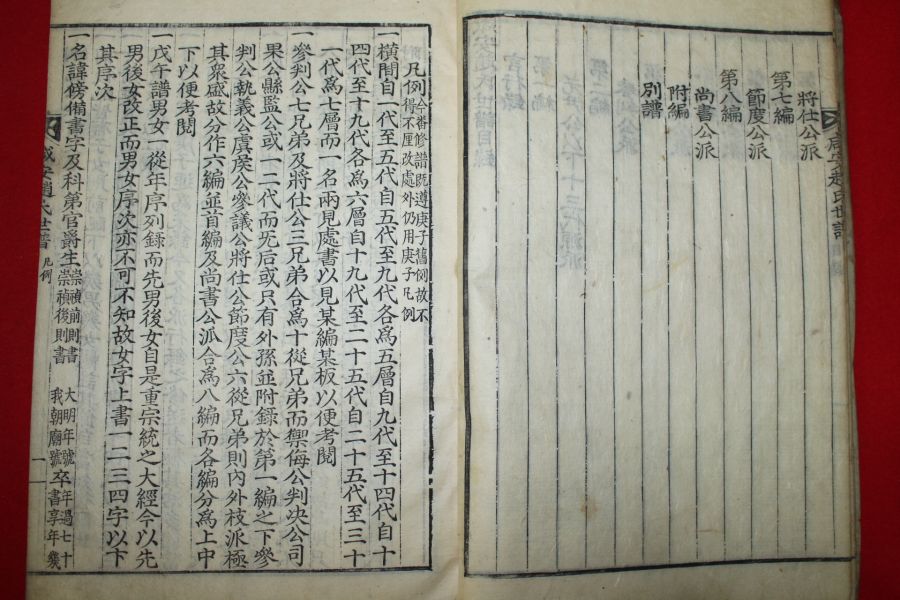 咸安趙氏世譜
將仕公派
第七編
節度公派
第八編
尚書公派
附編
別譜
凡例 今番修譜旣遵庚子舊例故不
得不厘改處外仍用庚子凡例
一橫間自一代至五代自五代至九代各爲五層自九代至十四代自十
四代至十九代各爲六層自十九代至二十五代自二十五代至三十
一代爲七層而一名兩見處書以見某編某板以便考閱
一參判公七兄弟及將仕公三兄弟合爲十從兄弟而禦侮公判决公司
果公縣監公或一二代而旡后或只有外孫並附錄於第一編之下參
判公執義公虞侯公參議公將仕公節度公六從兄弟則內外枝派極
其衆盛故分作六編並首編及尚書公派合爲八編而各編分爲上中
下以便考閱
一戊午譜男女一從年序列錄而先男後女自是重宗統之大經今以先
男後女改正而男女序次亦不可不知故女字上書一二三四字以下
其序次
一名諱傍備書字及科第官爵生 崇禎前則書 大明年號
崇禎後則書 我朝廟號 卒 年過七十
書享年幾
咸安趙氏世譜 凡例 一